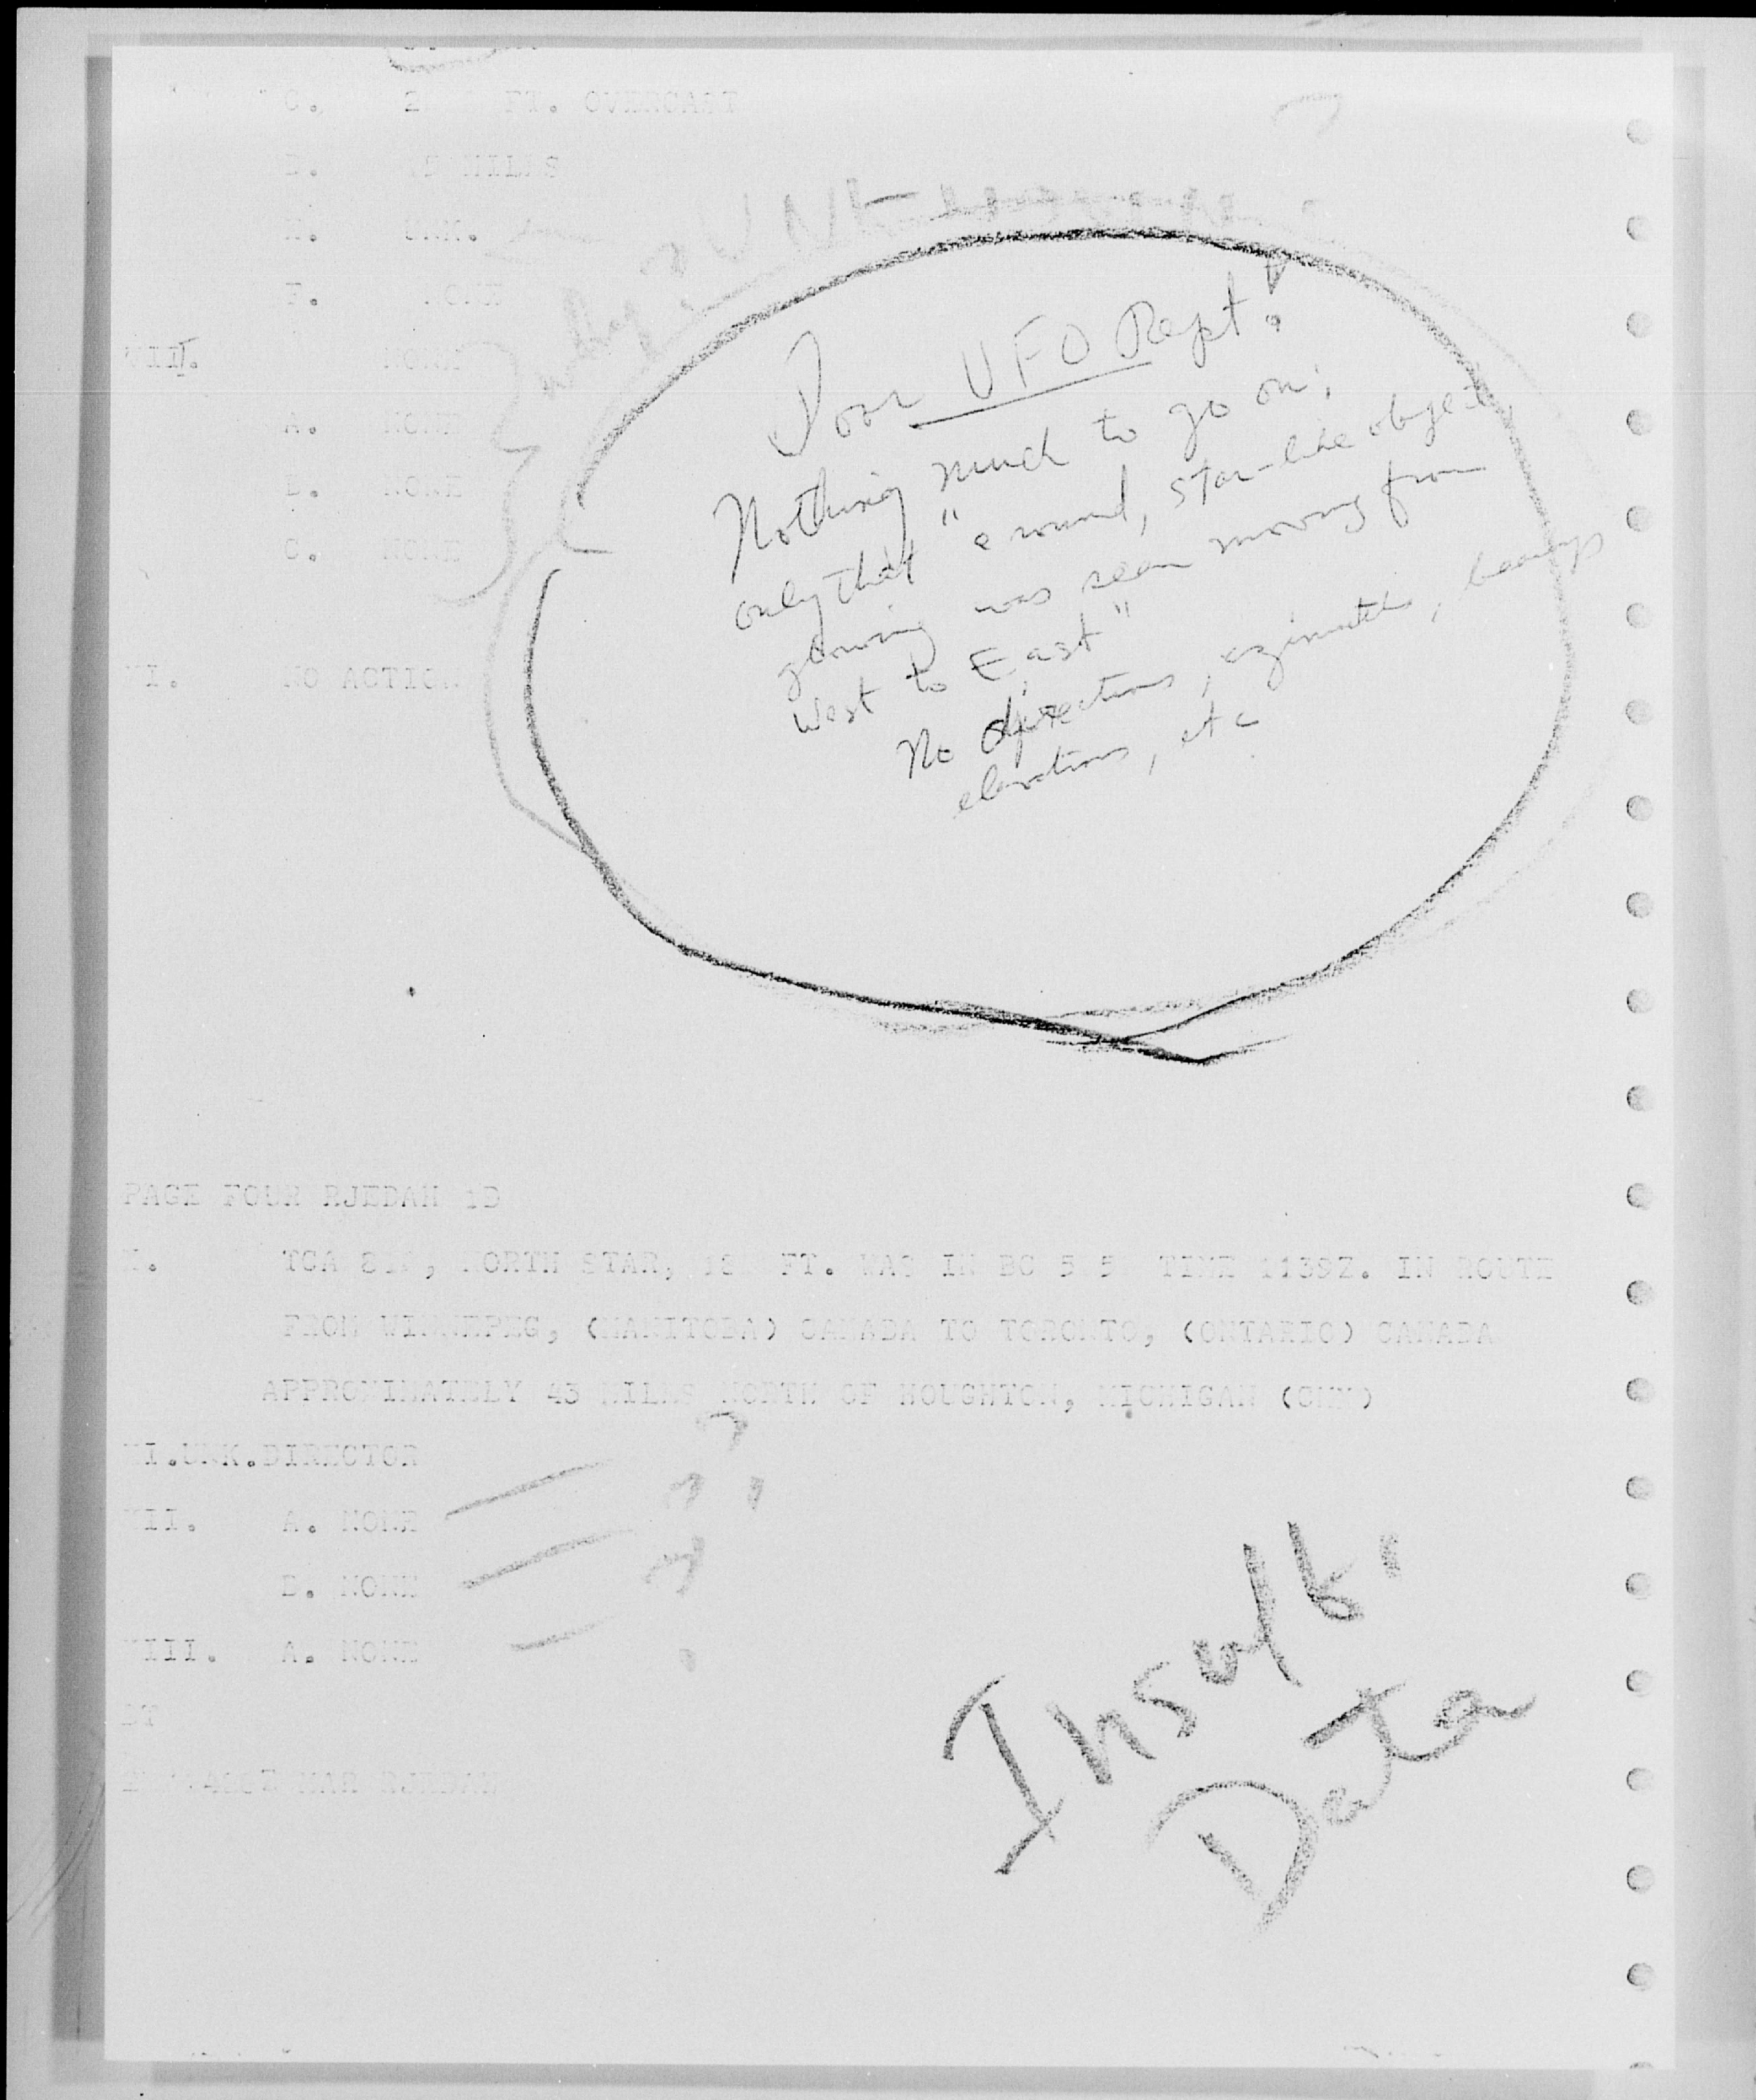 C. FT. OVERCAST
MILES
UNK.
F. NONE
VIII. NONE
A. NONE
B. NONE
C. NONE
NO ACTION
Poor UFO Rept!
Nothing much to go on;
only that "a round, star-like object
glowing was seen moving from
West to East"
No directions, azimuths, bearings
elevations, etc
PAGE FOUR RJEDAH 1D
TCA NORTH STAR, FT. WAS IN BG TIME 1139Z. IN ROUTE
FROM WINNEPEG, (MANITOBA) CANADA TO TORONTO, (ONTARIO) CANADA
APPROXIMATELY 43 MILES NORTH OF HOUGHTON, MICHIGAN (CMX)
XI.UNK.DIRECTOR
XII. A. NONE
B. NONE
XIII. A. NONE
BT
MAR RJEDAH
Insuff.
Data